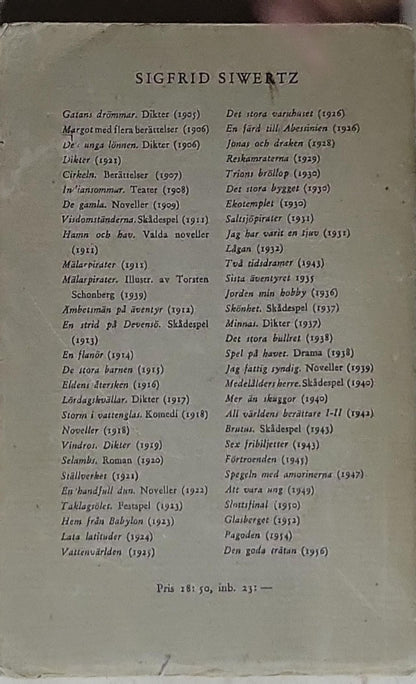 SIGFRID SIWERTZ
Gatans drömmar. Dikter (1905)
Margot med flera berättelser (1906)
De unga lönnen. Dikter (1906)
Dikter (1921)
Cirkeln. Berättelser (1907)
Indiansommar. Teater (1908)
De gamla. Noveller (1909)
Visdomständerna. Skådespel (1911)
Hamn och hav. Valda noveller
(1911)
Mälarpirater (1911)
Mälarpirater. Illustr. av Torsten
Schonberg (1939)
Ämbetsmän på äventyr (1912)
En strid på Devensö. Skådespel
(1913)
En flanör (1914)
De stora barnen (1915)
Eldens återsken (1916)
Lördagskvällar. Dikter (1917)
Storm i vattenglas. Komedi (1918)
Noveller (1918)
Vindros. Dikter (1919)
Selambs. Roman (1920)
Ställverket (1921)
En handfull dun. Noveller (1922)
Taklagsölet. Festspel (1923)
Hem från Babylon (1923)
Lata latituder (1924)
Vattenvärlden (1925)
Det stora varuhuset (1926)
En färd till Abessinien (1926)
Jonas och draken (1928)
Reskamraterna (1929)
Trions bröllop (1930)
Det stora bygget (1930)
Ekotemplet (1930)
Saltsjöpirater (1931)
Jag har varit en tjuv (1931)
Lågan (1932)
Två tidsdramer (1943)
Sista äventyret 1935
Jorden min hobby (1936)
Skönhet. Skådespel (1937)
Minnas. Dikter (1937)
Det stora bullret (1938)
Spel på havet. Drama (1938)
Jag fattig syndig. Noveller (1939)
Medelålders herre. Skådespel (1940)
Mer än skuggor (1940)
All världens berättare I-II (1942)
Brutus. Skådespel (1943)
Sex fribiljetter (1943)
Förtroenden (1945)
Spegeln med amorinerna (1947)
Att vara ung (1949)
Slottsfinal (1950)
Glasberget (1952)
Pagoden (1954)
Den goda tråtan (1956)
Pris 18: 50, inb. 23: —